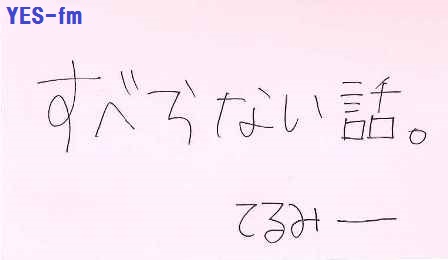 YES-fm
すべらない話。
てるみー